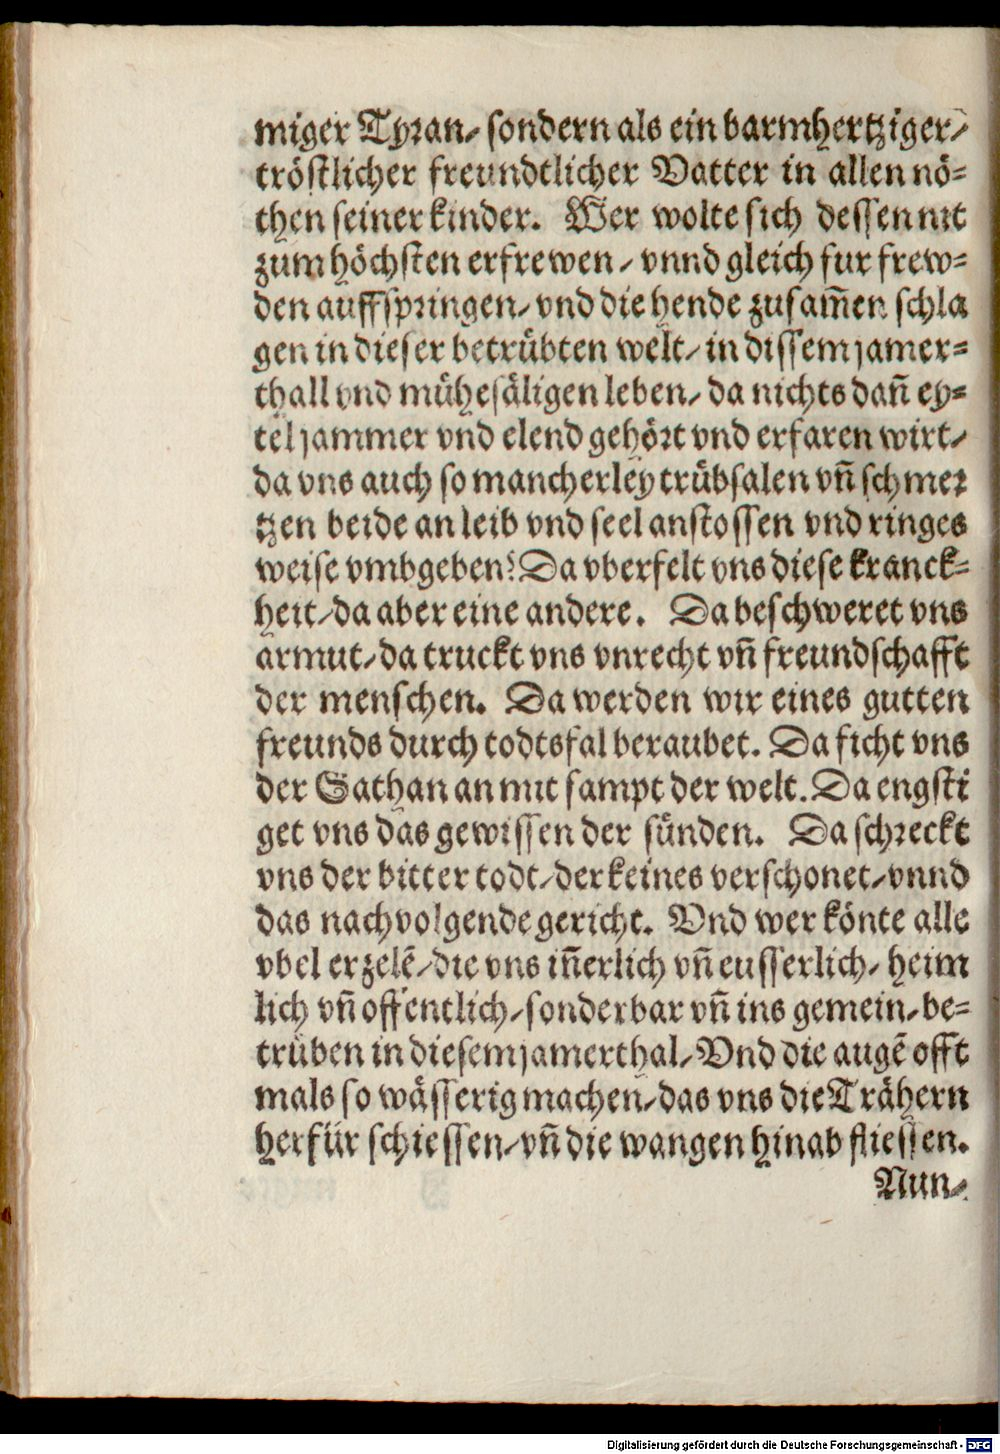 miger Tyran/ sondern als ein barmhertziger/
tröstlicher freundtlicher Vatter in allen nö-
then seiner kinder. Wer wolte sich dessen nit
zum höchsten erfrewen/ vnnd gleich fur frew-
den auffspringen/ vnd die hende zusam̄en schla
gen in dieser betrübten welt/ in dissem jamer-
thall vnd mühesäligen leben/ da nichts dañ ey-
tel jammer vnd elend gehört vnd erfaren wirt/
da vns auch so mancherley trübsalen vñ schmer
tzen beide an leib vnd seel anstossen vnd ringes
weise vmbgeben? Da vberfelt vns diese kranck-
heit/ da aber eine andere. Da beschweret vns
armut/ da truckt vns vnrecht vñ freundschafft
der menschen. Da werden wir eines gutten
freunds durch todtsfal beraubet. Da ficht vns
der Sathan an mit sampt der welt. Da engsti
get vns das gewissen der sünden. Da schreckt
vns der bitter todt/ der keines verschonet/ vnnd
das nachvolgende gericht. Vnd wer könte alle
vbel erzelē/ die vns iñerlich vñ eusserlich/ heim
lich vñ offentlich/ sonderbar vñ ins gemein/ be-
trüben in diesem jamerthal/ Vnd die augē offt
mals so wässerig machen/ das vns die Trähern
herfür schiessen/ vñ die wangen hinab fliessen.
Nun/
Digitalisierung gefördert durch die Deutsche Forschungsgemeinschaft - DFG